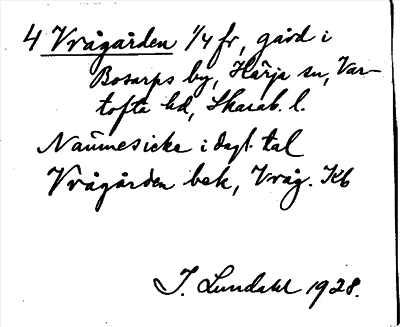 4 Vrågården 1/4 fr, gård i
Bosarps by, Härja sn, Var-
tofta hd, Skarab. l.
Namnes icke i dagl. tal
Vrågården bek, Vråg. Kb
I. Lundahl 1928.